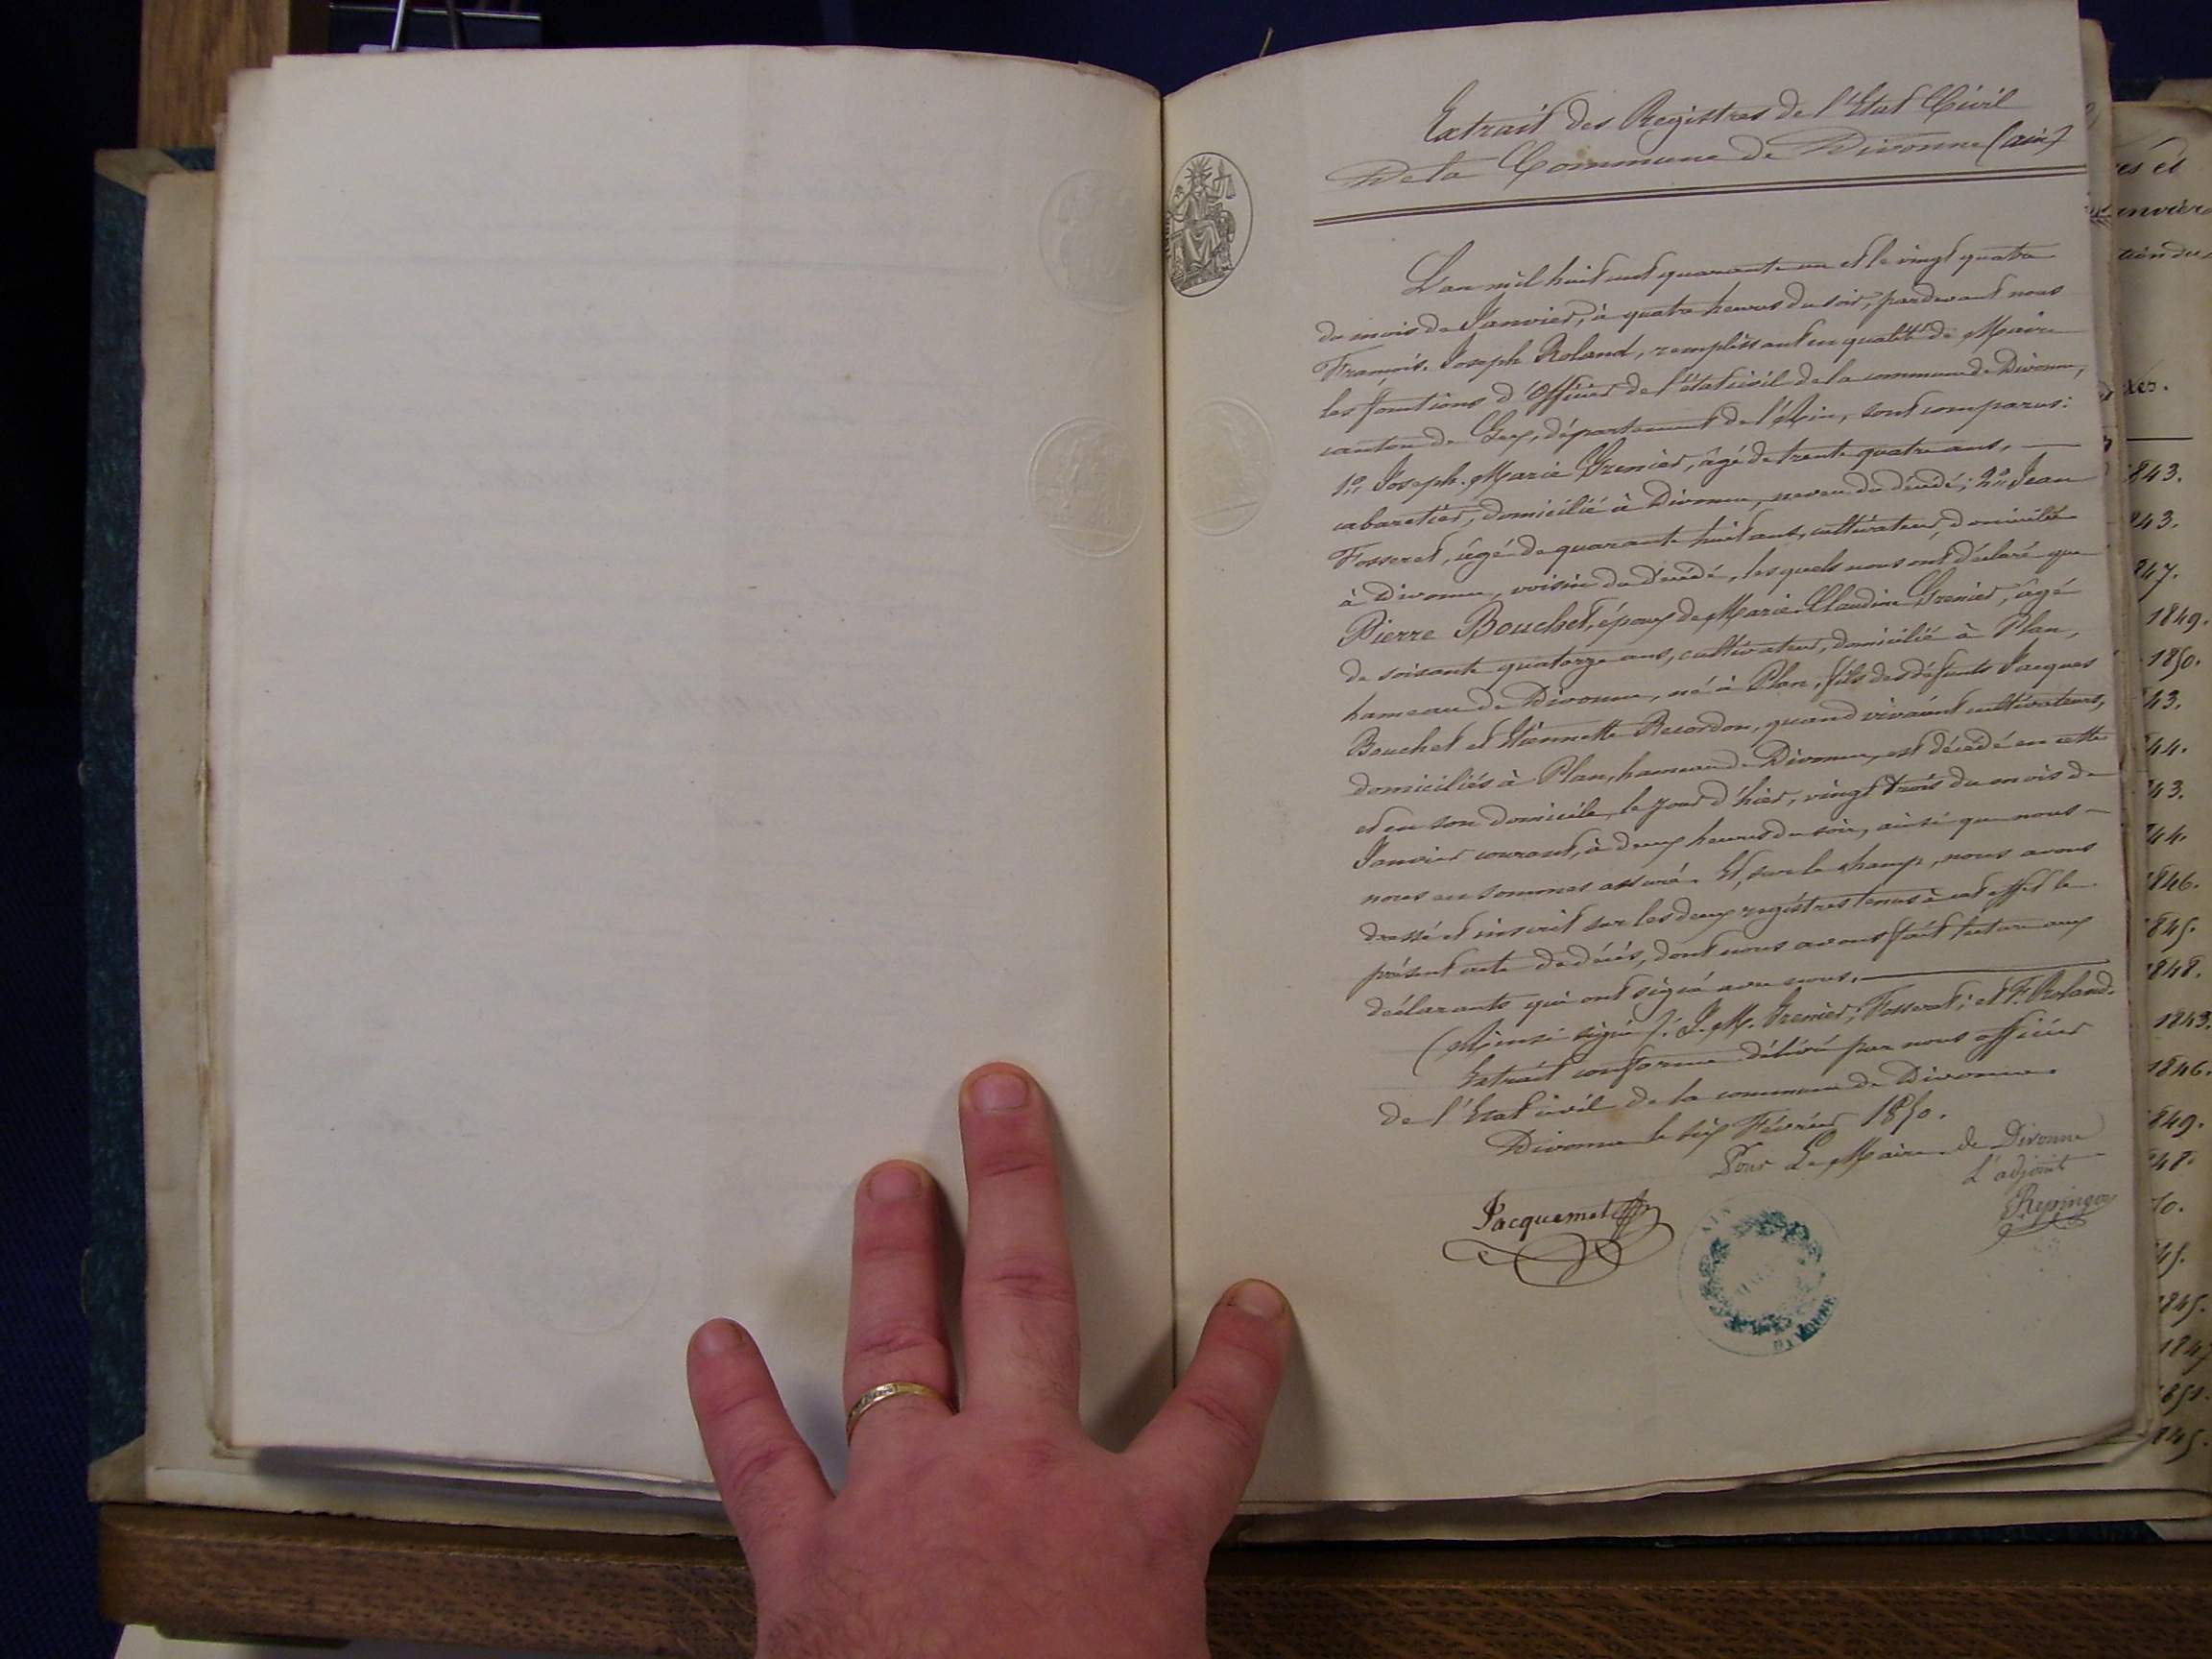 Extrait des Registres de l'Etat Civil
De la Commune de Divonne (ain)
L'an mil huit cent quarante un et le vingt quatre
du mois de Janvier, à quatre heures du soir, pardevant nous
François Joseph Roland, remplissant en qualité de Maire
les fonctions d'Officier de l'état civil de la commune de Divonne,
canton de Gex, département de l'Ain, sont comparus:
1º, Joseph-Marie Grenier, âgé de trente quatre ans,
cabaretier, domicilié à Divonne, neveu du décédé; 2º, Jean
Fosseret, âgé de quarante huit ans, cultivateur, domicilié
à Divonne, voisin du décédé, lesquels nous ont déclaré que
Pierre Bouchet, époux de Marie Claudine Grenier, âgé
de soixante quatorze ans, cultivateur, domicilié à Plan,
hameau de Divonne, né à Plan, fils des défunts Jacques
Bouchet et Etiennette Recordon, quand vivaient cultivateurs,
domiciliés à Plan, hameau de Divonne, est décédé en cette
et en son domicile, le jour d'hier, vingt trois du mois de
Janvier courant, à deux heures du soir, ainsi que nous
nous en sommes assuré. Et, sur le champ, nous avons
dressé et inscrit sur les deux registres tenus à cet effet le
présent acte de décès, dont nous avons fait lecture aux
déclarants qui ont signé avec nous.
(Ainsi signé): J. M. Grenier; Fosseret; et F. Roland.
Extrait conforme délivré par nous officier
de l'Etat civil de la commune de Divonne.
Divonne le six Février 1850.
Pour Le Maire de Divonne
L'adjoint
Jacquemet
AIN
DIVONNE
es et
anvier
843.
843.
847.
1849.
1850.
43.
44.
43.
44.
1846.
845.
1848.
1843.
1846.
849.
48.
45.
845.
1847
845.